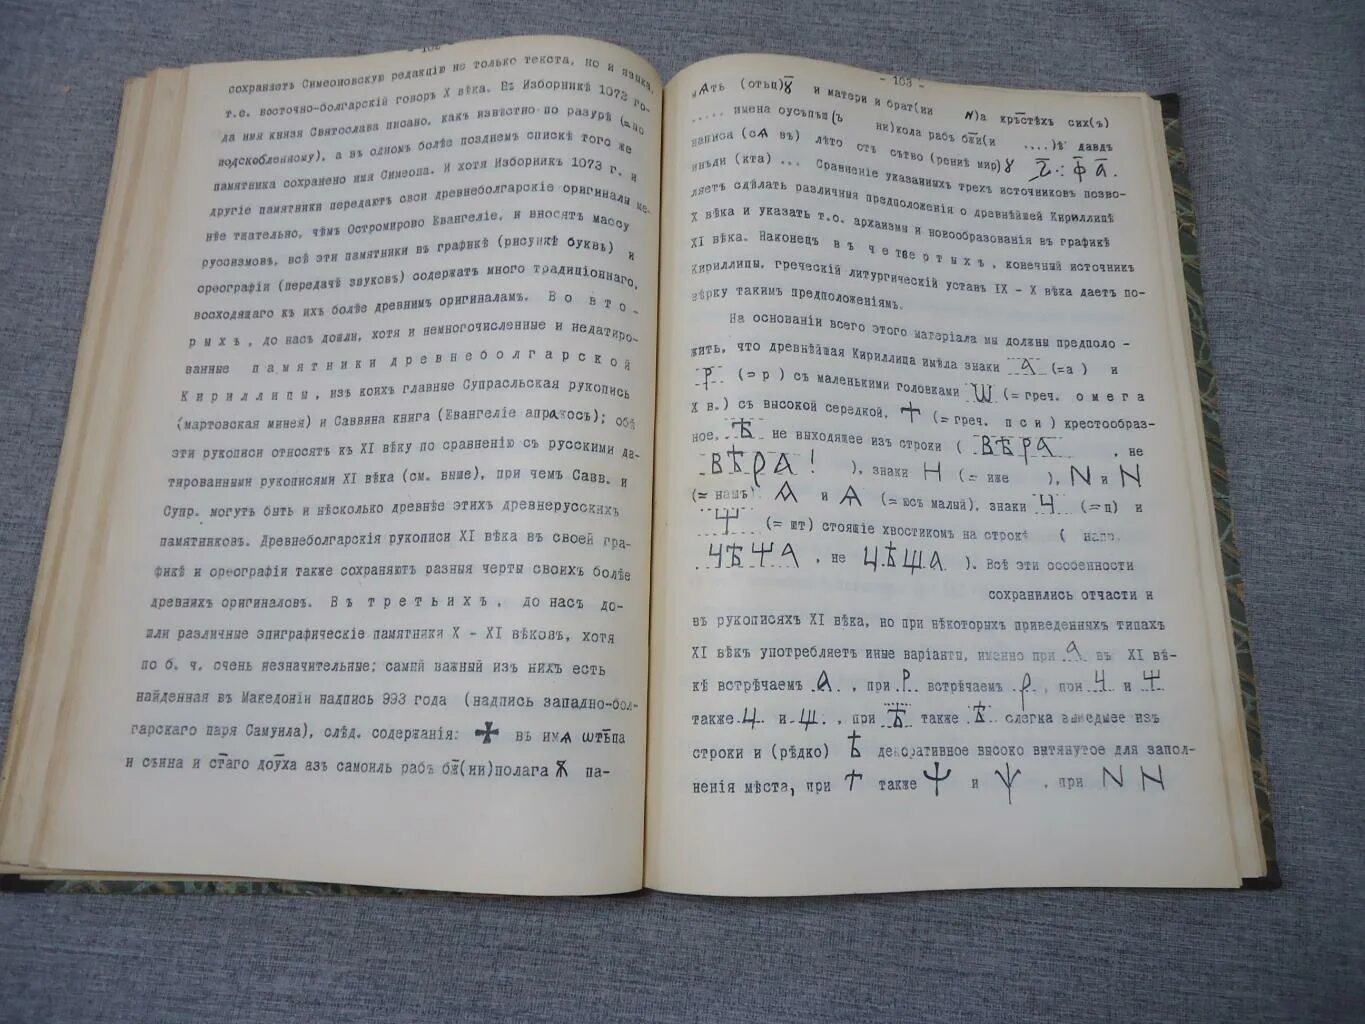 - 102 -
сохраняетъ Симеоновскую редакцію не только текста, но и языка,
т.е. восточно-болгарскій говоръ X вѣка. Въ Изборникѣ 1073 го-
да имя князя Святослава писано, какъ извѣстно по разурѣ (=по
подскобленному), а въ одномъ болѣе позднемъ спискѣ того же
памятника сохранено имя Симеона. И хотя Изборникъ 1073 г. и
другіе памятники передаютъ свои древнеболгарскіе оригиналы ме-
нѣе тщательно, чѣмъ Остромирово Евангеліе, и вносятъ массу
руссизмовъ, всѣ эти памятники въ графикѣ (рисункѣ буквъ) и
орѳографіи (передачѣ звуковъ) содержатъ много традиціоннаго,
восходящаго къ ихъ болѣе древнимъ оригиналамъ. Во вто-
рыхъ, до насъ дошли, хотя и немногочисленные и недатиро-
ванные памятники древнеболгарской
Кириллицы, изъ коихъ главные Супрасльская рукопись
(мартовская минея) и Саввина книга (Евангеліе апракосъ); обѣ
эти рукописи относятъ къ XI вѣку по сравненію съ русскими да-
тированными рукописями XI вѣка (см. выше), при чемъ Савв. и
Супр. могутъ быть и нѣсколько древнѣе этихъ древнерусскихъ
памятниковъ. Древнеболгарскія рукописи XI вѣка въ своей гра-
фикѣ и орѳографіи также сохраняютъ разныя черты своихъ болѣе
древнихъ оригиналовъ. Въ третьихъ, до насъ до-
шли различные эпиграфическіе памятники X - XI вѣковъ, хотя
по б. ч. очень незначительные; самый важный изъ нихъ есть
найденная въ Македоніи надпись 993 года (надпись западно-бол-
гарскаго царя Самуила), слѣд. содержанія: ✠ въ имѧ ѡтьца
и съина и стаго доуха азъ самоиль рабъ бж(ии)полага ѫ па-
- 103 -
мѧть (отьц)ȣ и матери и брат(ии N)а кръстѣхъ сих(ъ)
..... имена оусъпъш(ъ ни)кола рабъ бжи(и ....)ѣ давдъ
написа(сѧ въ) лѣто отъ сътво(рениѣ мир)ȣ ҂ѕ : ф а.
инъди(кта) ... Сравненіе указанныхъ трехъ источниковъ позво-
ляетъ сдѣлать различныя предположенія о древнѣйшей Кириллицѣ
X вѣка и указать т.о. архаизмы и новообразованія въ графикѣ
XI вѣка. Наконецъ въ четвертыхъ, конечный источникъ
Кириллицы, греческій литургическій уставъ IX - X вѣка даетъ по-
вѣрку такимъ предположеніямъ.
На основаніи всего этого матеріала мы должны предполо -
жить, что древнѣйшая Кириллица имѣла знаки а (=а) и
р (=р) съ маленькими головками Ѡ (=греч. омега
X в.) съ высокой середкой, ☨ (=греч. пси) крестообраз-
ное, ѣ не выходящее изъ строки (ВѢРА, не
ВѢРА!), знаки Н (=иже), N и N
(=нашъ) Ѧ и Ѧ (=юсъ малый), знаки Ч (=ц) и
Щ (=шт) стоящіе хвостикомъ на строкѣ (напр.
ЦѢЩА, не ЦѢЩА). Всѣ эти особенности
сохранились отчасти и
въ рукописяхъ XI вѣка, но при нѣкоторыхъ приведенныхъ типахъ
XI вѣкъ употребляетъ иные варіанты, именно при а въ XI вѣ-
кѣ встрѣчаемъ А., при Р встрѣчаемъ р, при Ц и Щ
также Ц и Щ, при Ѣ также Ѣ слегка вышедшее изъ
строки и (рѣдко) Ѣ декоративное высоко вытянутое для запол-
ненія мѣста, при ☨ также Ѱ и Ѱ, при N N